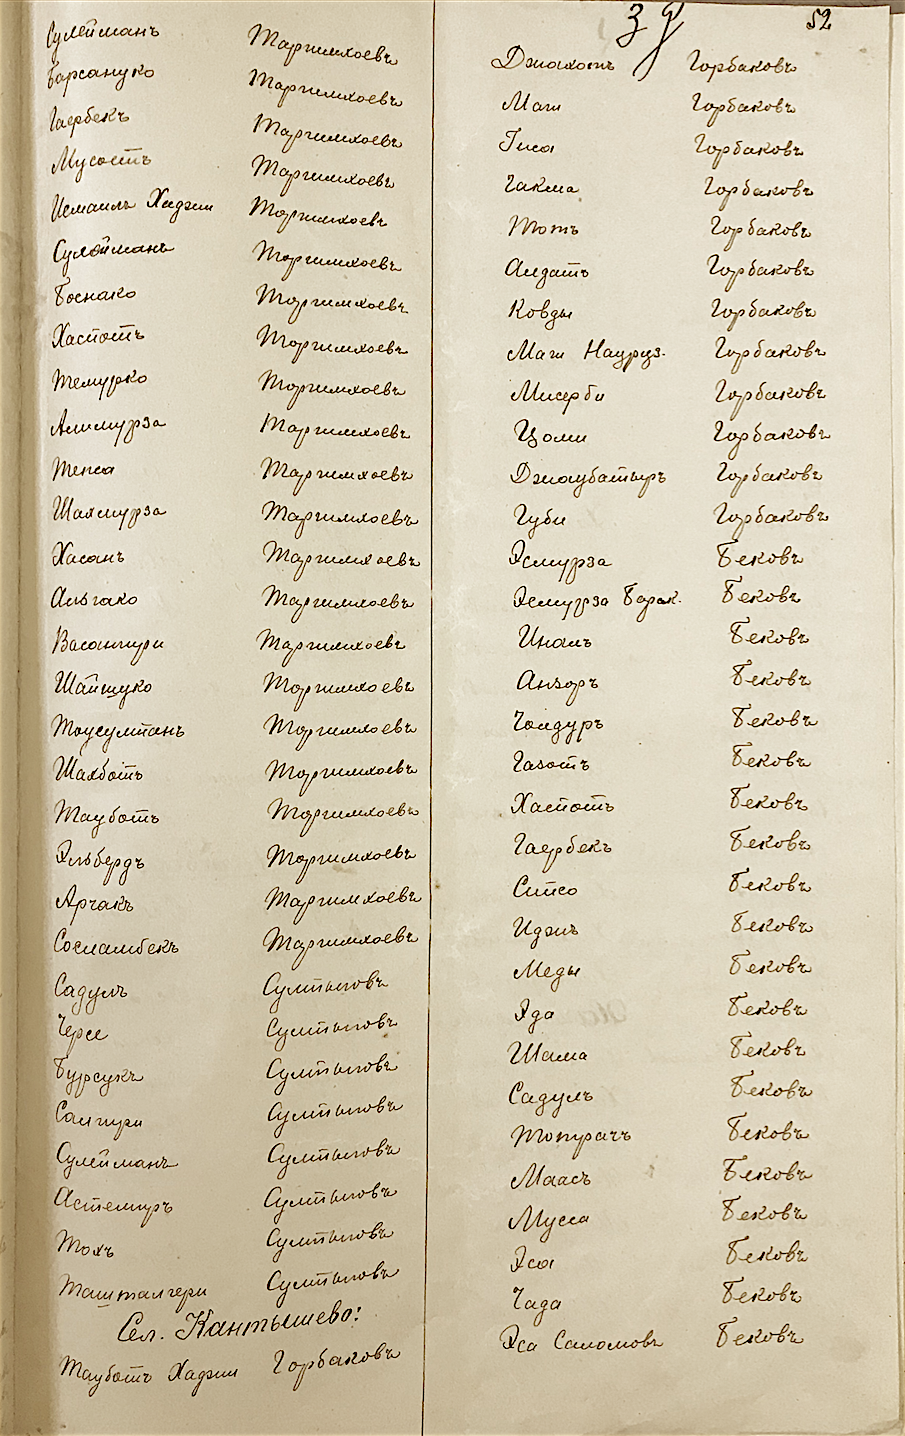 52
Сулейманъ Таргимхоевъ
Барсануко Таргимхоевъ
Гаербекъ Таргимхоевъ
Мусостъ Таргимхоевъ
Исмаилъ Хаджи Таргимхоевъ
Сулейманъ Таргимхоевъ
Боснако Таргимхоевъ
Хаспотъ Таргимхоевъ
Темурко Таргимхоевъ
Алимурза Таргимхоевъ
Тепса Таргимхоевъ
Шахмурза Таргимхоевъ
Хасанъ Таргимхоевъ
Альгако Таргимхоевъ
Васангири Таргимхоевъ
Шайшуко Таргимхоевъ
Таусултанъ Таргимхоевъ
Шахботъ Таргимхоевъ
Тауботъ Таргимхоевъ
Эльбердъ Таргимхоевъ
Арчакъ Таргимхоевъ
Сосламбекъ Таргимхоевъ
Садулъ Султыговъ
Черси Султыговъ
Бурсукъ Султыговъ
Сангири Султыговъ
Сулейманъ Султыговъ
Астемиръ Султыговъ
Тохъ Султыговъ
Ташталгери Султыговъ
Сел. Кантышево:
Тауботъ Хаджи Горбаковъ
Джахотъ Горбаковъ
Маги Горбаковъ
Гиса Горбаковъ
Гакма Горбаковъ
Тотъ Горбаковъ
Аидатъ Горбаковъ
Ковды Горбаковъ
Маги Науруз. Горбаковъ
Мисерби Горбаковъ
Цоми Горбаковъ
Джаубатыръ Горбаковъ
Губи Горбаковъ
Эсмурза Бековъ
Эсмурза Борак. Бековъ
Иналъ Бековъ
Анзоръ Бековъ
Чондуръ Бековъ
Газотъ Бековъ
Хаспотъ Бековъ
Гаербекъ Бековъ
Сипсо Бековъ
Идигъ Бековъ
Меды Бековъ
Эда Бековъ
Шама Бековъ
Садулъ Бековъ
Топурачъ Бековъ
Маасъ Бековъ
Мусса Бековъ
Эса Бековъ
Чада Бековъ
Эса Саломовъ Бековъ